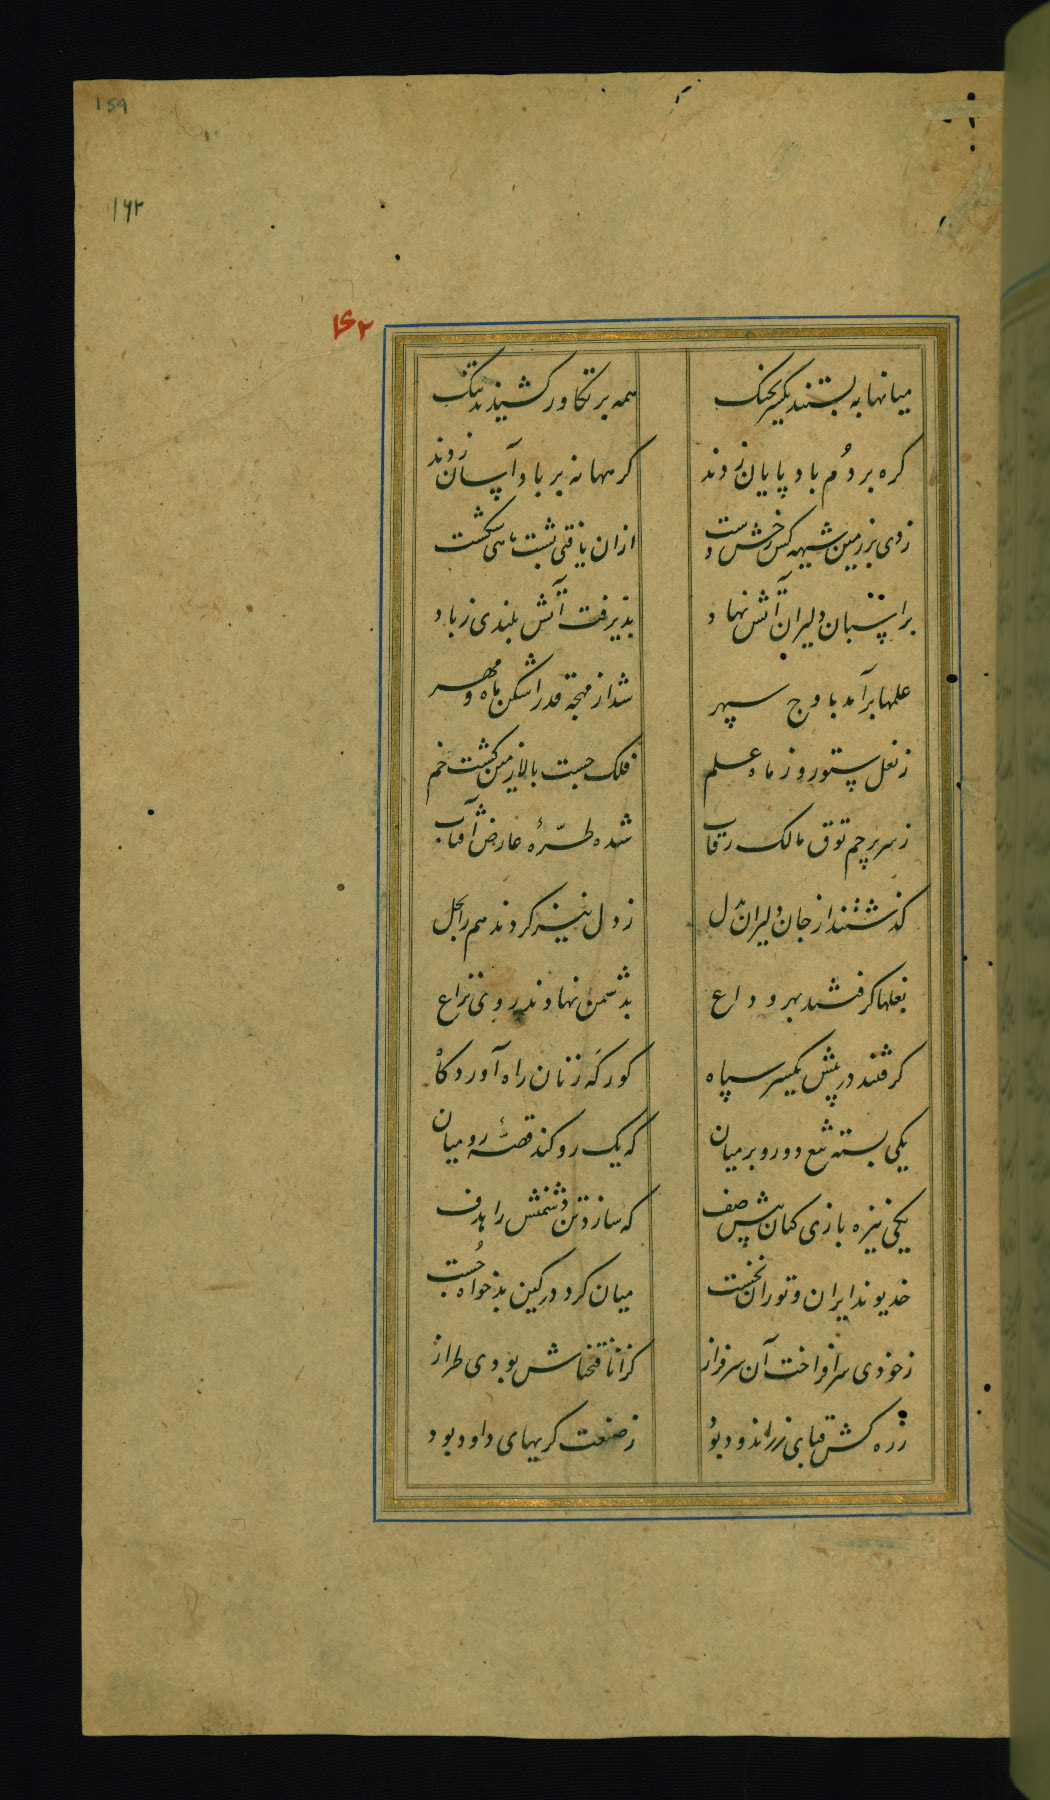 159
۱۶۲
میانها به بستند یکسر بجنگ همه بر تکاور کشیدند تنگ
کره بر دُم باد پایان زدند کرمها نه بر باد آسان زدند
زدی بر زمین شیهه کس رخش دست ازان یافتی پشت ماهی شکست
بر اسپان دلیران آتش نهاد پذیرفت آتش بلندی ز باد
علمها برآمد باوج سپهر شد از مهجه قدر اشکن ماه و مهر
ز نعل ستور و ز ماه علم فلک جست بالا زمین کشت خم
ز سر پرچم توق مالک رقاب شده طرّهٔ عارض آفتاب
کذشتند از جان دلیران بدل ز دل نیز کردند هم را بحل
بغلها کرفتند بهر وداع بدشمن نهادند روی نزاع
کرفتند در پیش یکسر سپاه کورکه زنان راه آوردکاه
یکی بسته تیغ دو رو بر میان که یک رو کند قصّهٔ رومیان
یکی نیزه بازی کنان پیش صف که سازد تن دشمنش را هدف
خدیو ند ایران و توران نخست میان کرد در کین بدخواه چُست
ز خودی سرافراخت آن سرفراز کزانا فتحناش بودی طراز
زره کش قبای زراندود بود ز صنعت کریهای داود بود